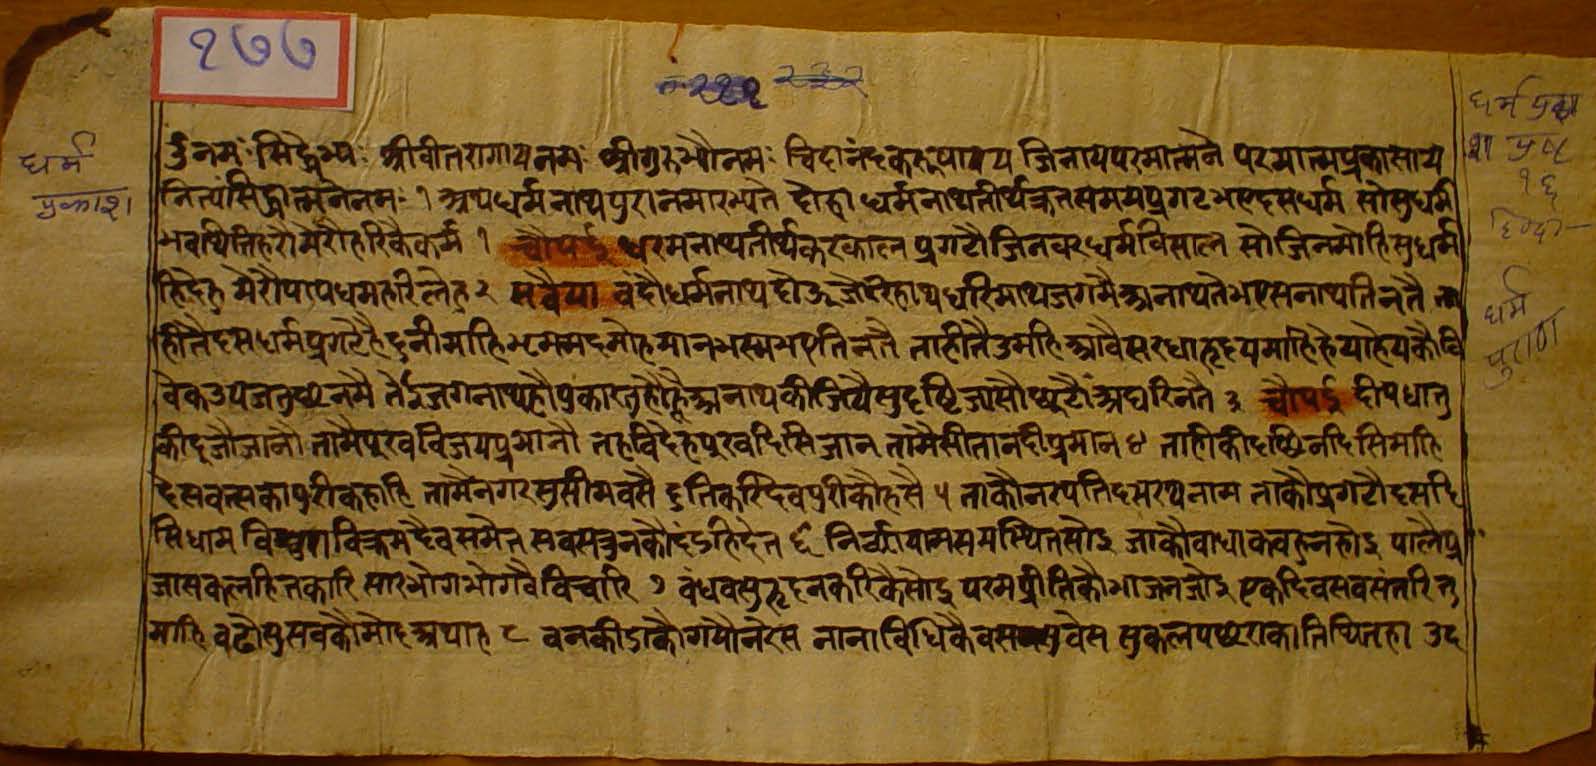 १७७
२३२
धर्म
प्रकाश
धर्म प्रका
श पृष्ट
१६
हिन्दी
धर्म
पुराण
उँनमः सिद्धेभ्यः श्रीवीतरागायनमः श्रीगुरुभ्यौनमः चिदानंदैकरूपायय जिनायपरमात्मनै परमात्मप्रकासाय
नित्यंसिद्धात्मनेनमः १ अथधर्मनाथपुरानमारभ्यते दोहा धर्मनाथतीर्थकृतसमयप्रगटभएदसधर्म सोसुधर्म
भवथितिहरौमेरौहरिकैकर्म १ चौपई धरमनाथतीर्थकरकाल प्रगटौजिनवरधर्मविसाल सोजिनमोहिसुधर्म
हिदेहु मेरौपापपधमहरिलेहु २ सवैया वंदौधर्मनाथदोऊजोरिहाथधरिमाथजगमैअनाथतेभएसनाथतिनतै ता
हीतैदसधर्मप्रगटेहैदुनीमाहिभरममदमोहमानभस्मभएतिनतै ताहीतैउमहिआवैसरधाहृदयमाहिहेयाहेयकौवि
वेकउपजतुछिनमै तेईजगनाथहौपुकारतुहौहूअनाथकीजियैसुदृष्टिजासौछुटौंअघरिनतै ३ चौपई दीपधातु
कीदूजौजानौ तामैपूरवविजयप्रमानौ तहविदेहपूरवदिसिजान तामैसीतानदीप्रमान ४ ताहीकीदछिनदिसिमाहि
देसवत्सकापुरीकहाहि तामैनगरसुसीमवसै दुतिकरिदेवपुरीकौहसै ५ ताकौनरपतिदसरथनाम ताकौप्रगटौदसदि
सिधाम विक्रमदैवसमेत सवसत्रुनकौदंडहिदेत ६ निर्व्यायामसमथितसोइ जाकौवाधाकवहुनहोइ पालैप्र
जासकलहितकारि सारभोगभोगवैविचारि ७ वंधवसुहृदनकरिकैसोइ परमप्रीतिकौभाजनजोइ एकदिवसवसंतरितु
माहि वढौसुसवकौमोदअथाह ८ वनक्रीडाकौगयौनरेस नानाविधिकैवससुवेस सुकलपछराकातिथितहा उद